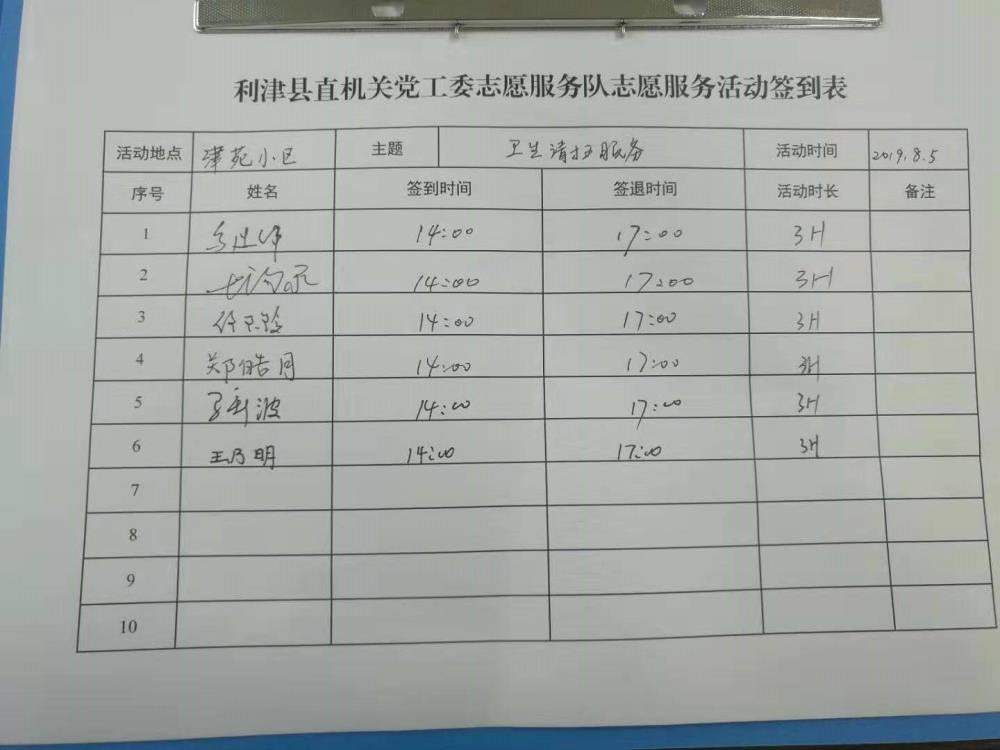 利津县直机关党工委志愿服务队志愿服务活动签到表
活动地点 津苑小区 主题 卫生清扫服务 活动时间 2019.8.5
序号 姓名 签到时间 签退时间 活动时长 备注
1 14:00 17:00 3H
2 14:00 17:00 3H
3 14:00 17:00 3H
4 郑皓月 14:00 17:00 3H
5 14:00 17:00 3H
6 王乃明 14:00 17:00 3H
7
8
9
10